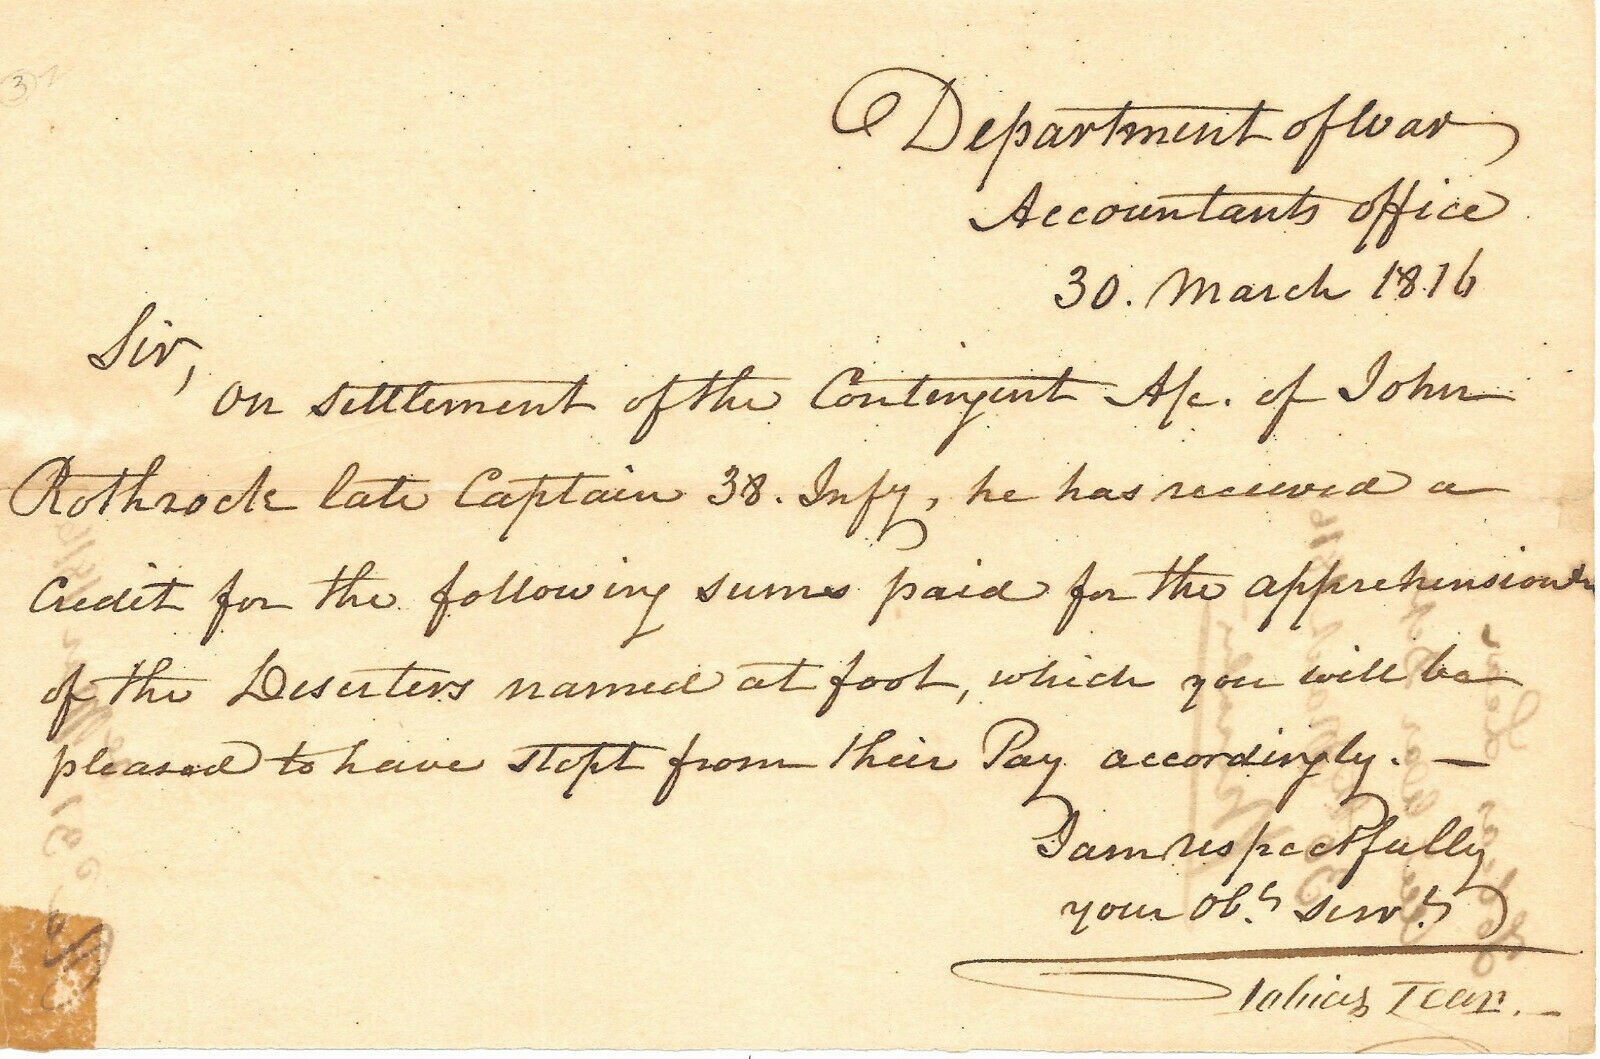 Department of War
Accountants office
30. March 1816
Sir,
On settlement of the Contingent A/c. of John
Rothrock late Captain 38. Infy, he has received a
Credit for the following sums paid for the apprehension
of the Deserters named at foot, which you will be
pleased to have stopt from their Pay accordingly. —
I am respectfully
your Obt. Servt.
Tobias Lear. —
3